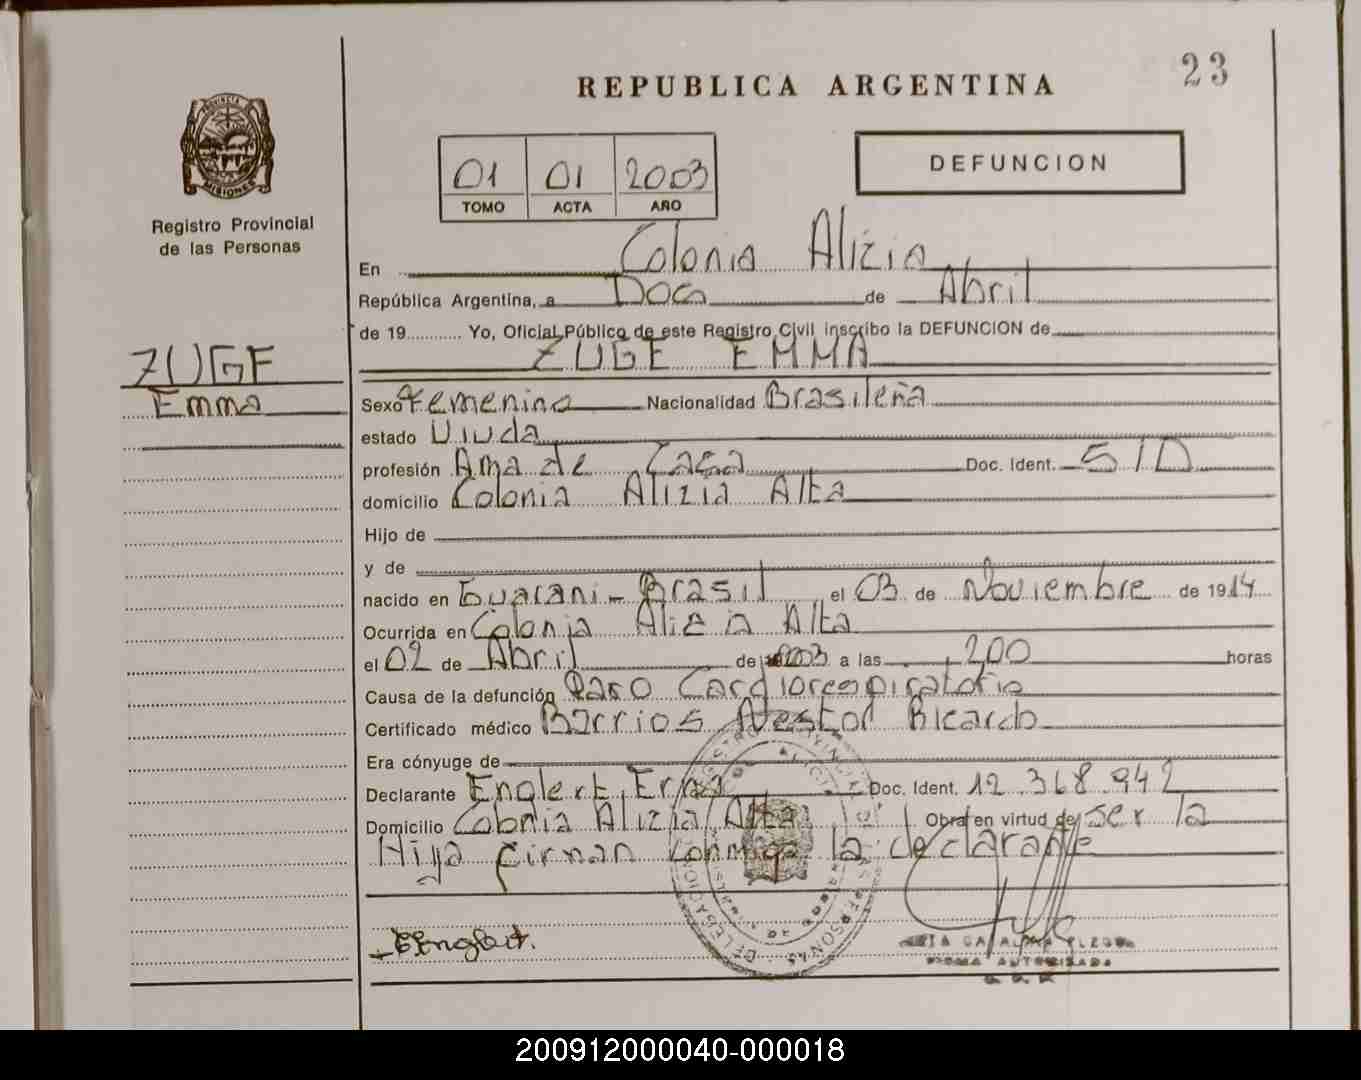 23
REPUBLICA ARGENTINA
PROVINCIA DE
MISIONES
Registro Provincial
de las Personas
01 01 2003
TOMO ACTA AÑO
DEFUNCION
En Colonia Alizia
República Argentina, a Dos de Abril
de 19 Yo, Oficial Público de este Registro Civil inscribo la DEFUNCION de
ZUGE EMMA
ZUGE
Emma
Sexo Femenino Nacionalidad Brasileña
estado Viuda
profesión Ama de Casa Doc. Ident. S/D
domicilio Colonia Alizia Alta
Hijo de
y de
nacido en Guarani - Brasil el 03 de Noviembre de 1914
Ocurrida en Colonia Alizia Alta
el 02 de Abril de 2003 a las 200 horas
Causa de la defunción Paro Cardiorespiratorio
Certificado médico Barrios Nestor Ricardo
Era cónyuge de
Declarante Englert, Erna Doc. Ident. 12.368.942
Domicilio Colonia Alizia Alta Obra en virtud de ser la
Hija firman conmigo la declarante
EEnglert.
FIRMA AUTORIZADA
200912000040-000018